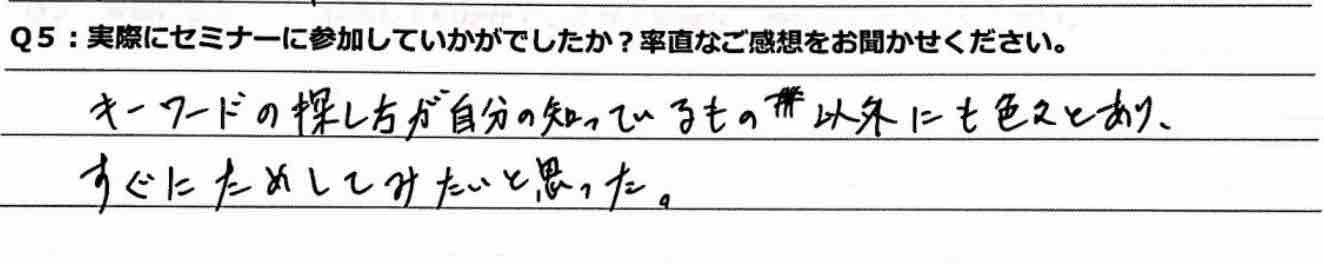 Q5：実際にセミナーに参加していかがでしたか？率直なご感想をお聞かせください。
キーワードの探し方が自分の知っているもの以外にも色々とあり、
すぐにためしてみたいと思った。